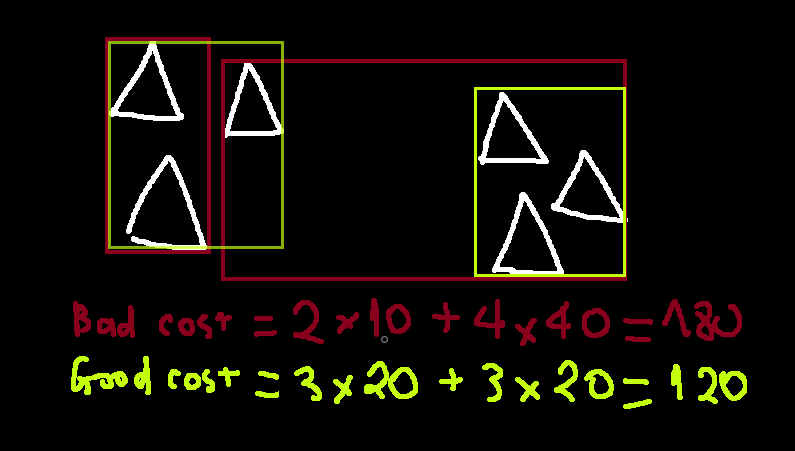 Bad cost = 2 x 10 + 4 x 40 = 180
Good cost = 3 x 20 + 3 x 20 = 120